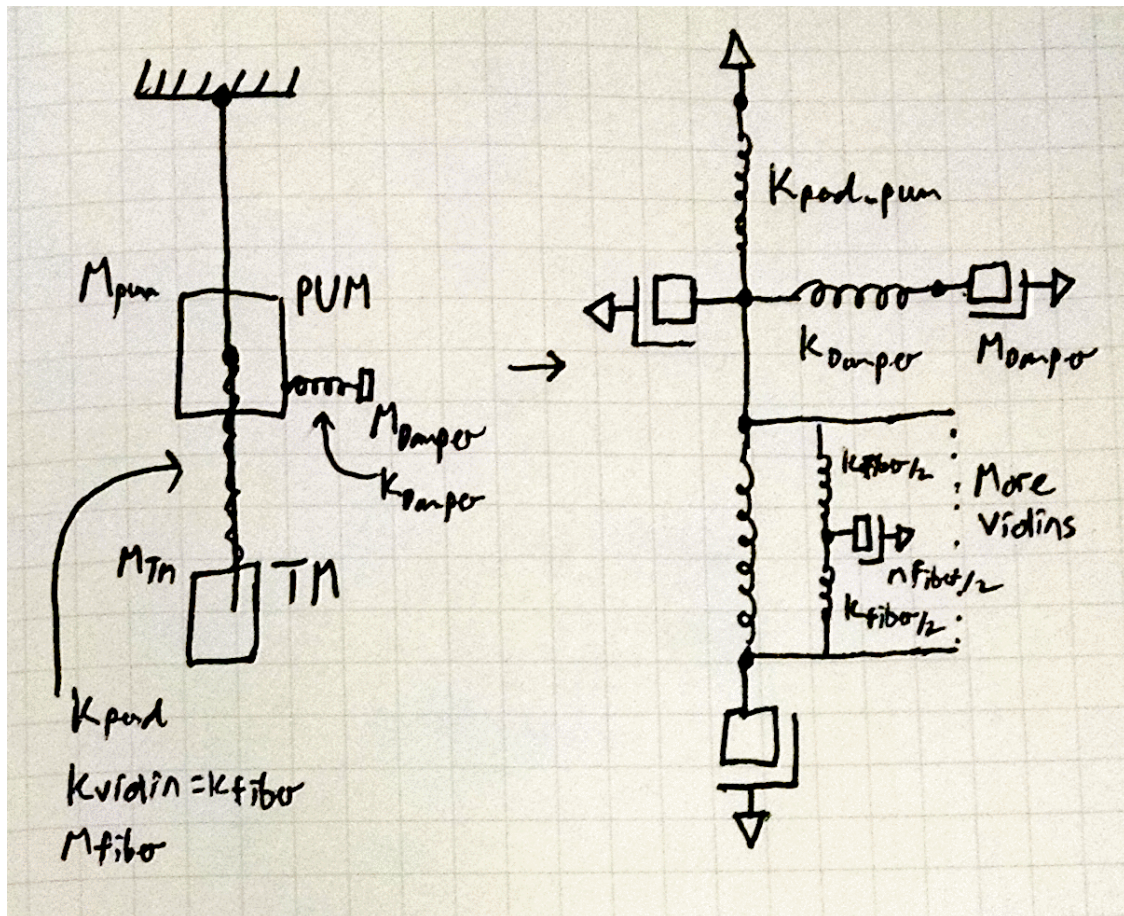 Mpum
PUM
MDamper
KDamper
MTM
TM
Kpend
Kviolin = Kfiber
Mfiber
Kpend-pum
KDamper
MDamper
Kfiber/2
More
Violins
Mfiber/2
Kfiber/2